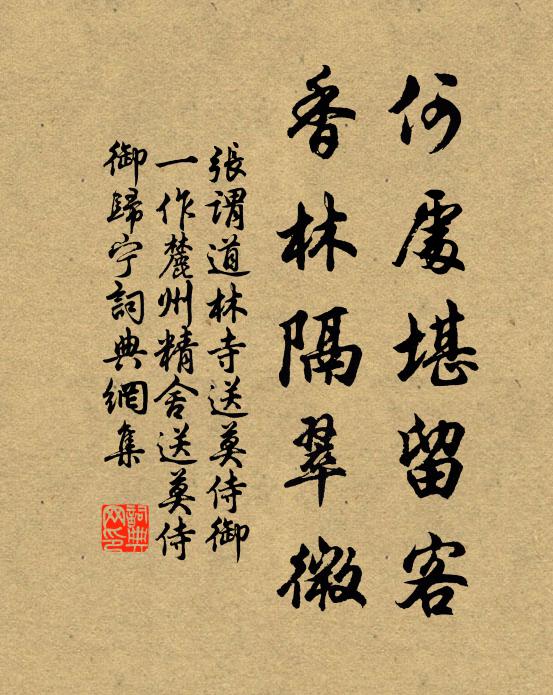 何處堪留客
香林隔翠微
張謂道林寺送莫侍御
一作麓州精舍送莫侍
御歸宁詞典網集
詞典
网印